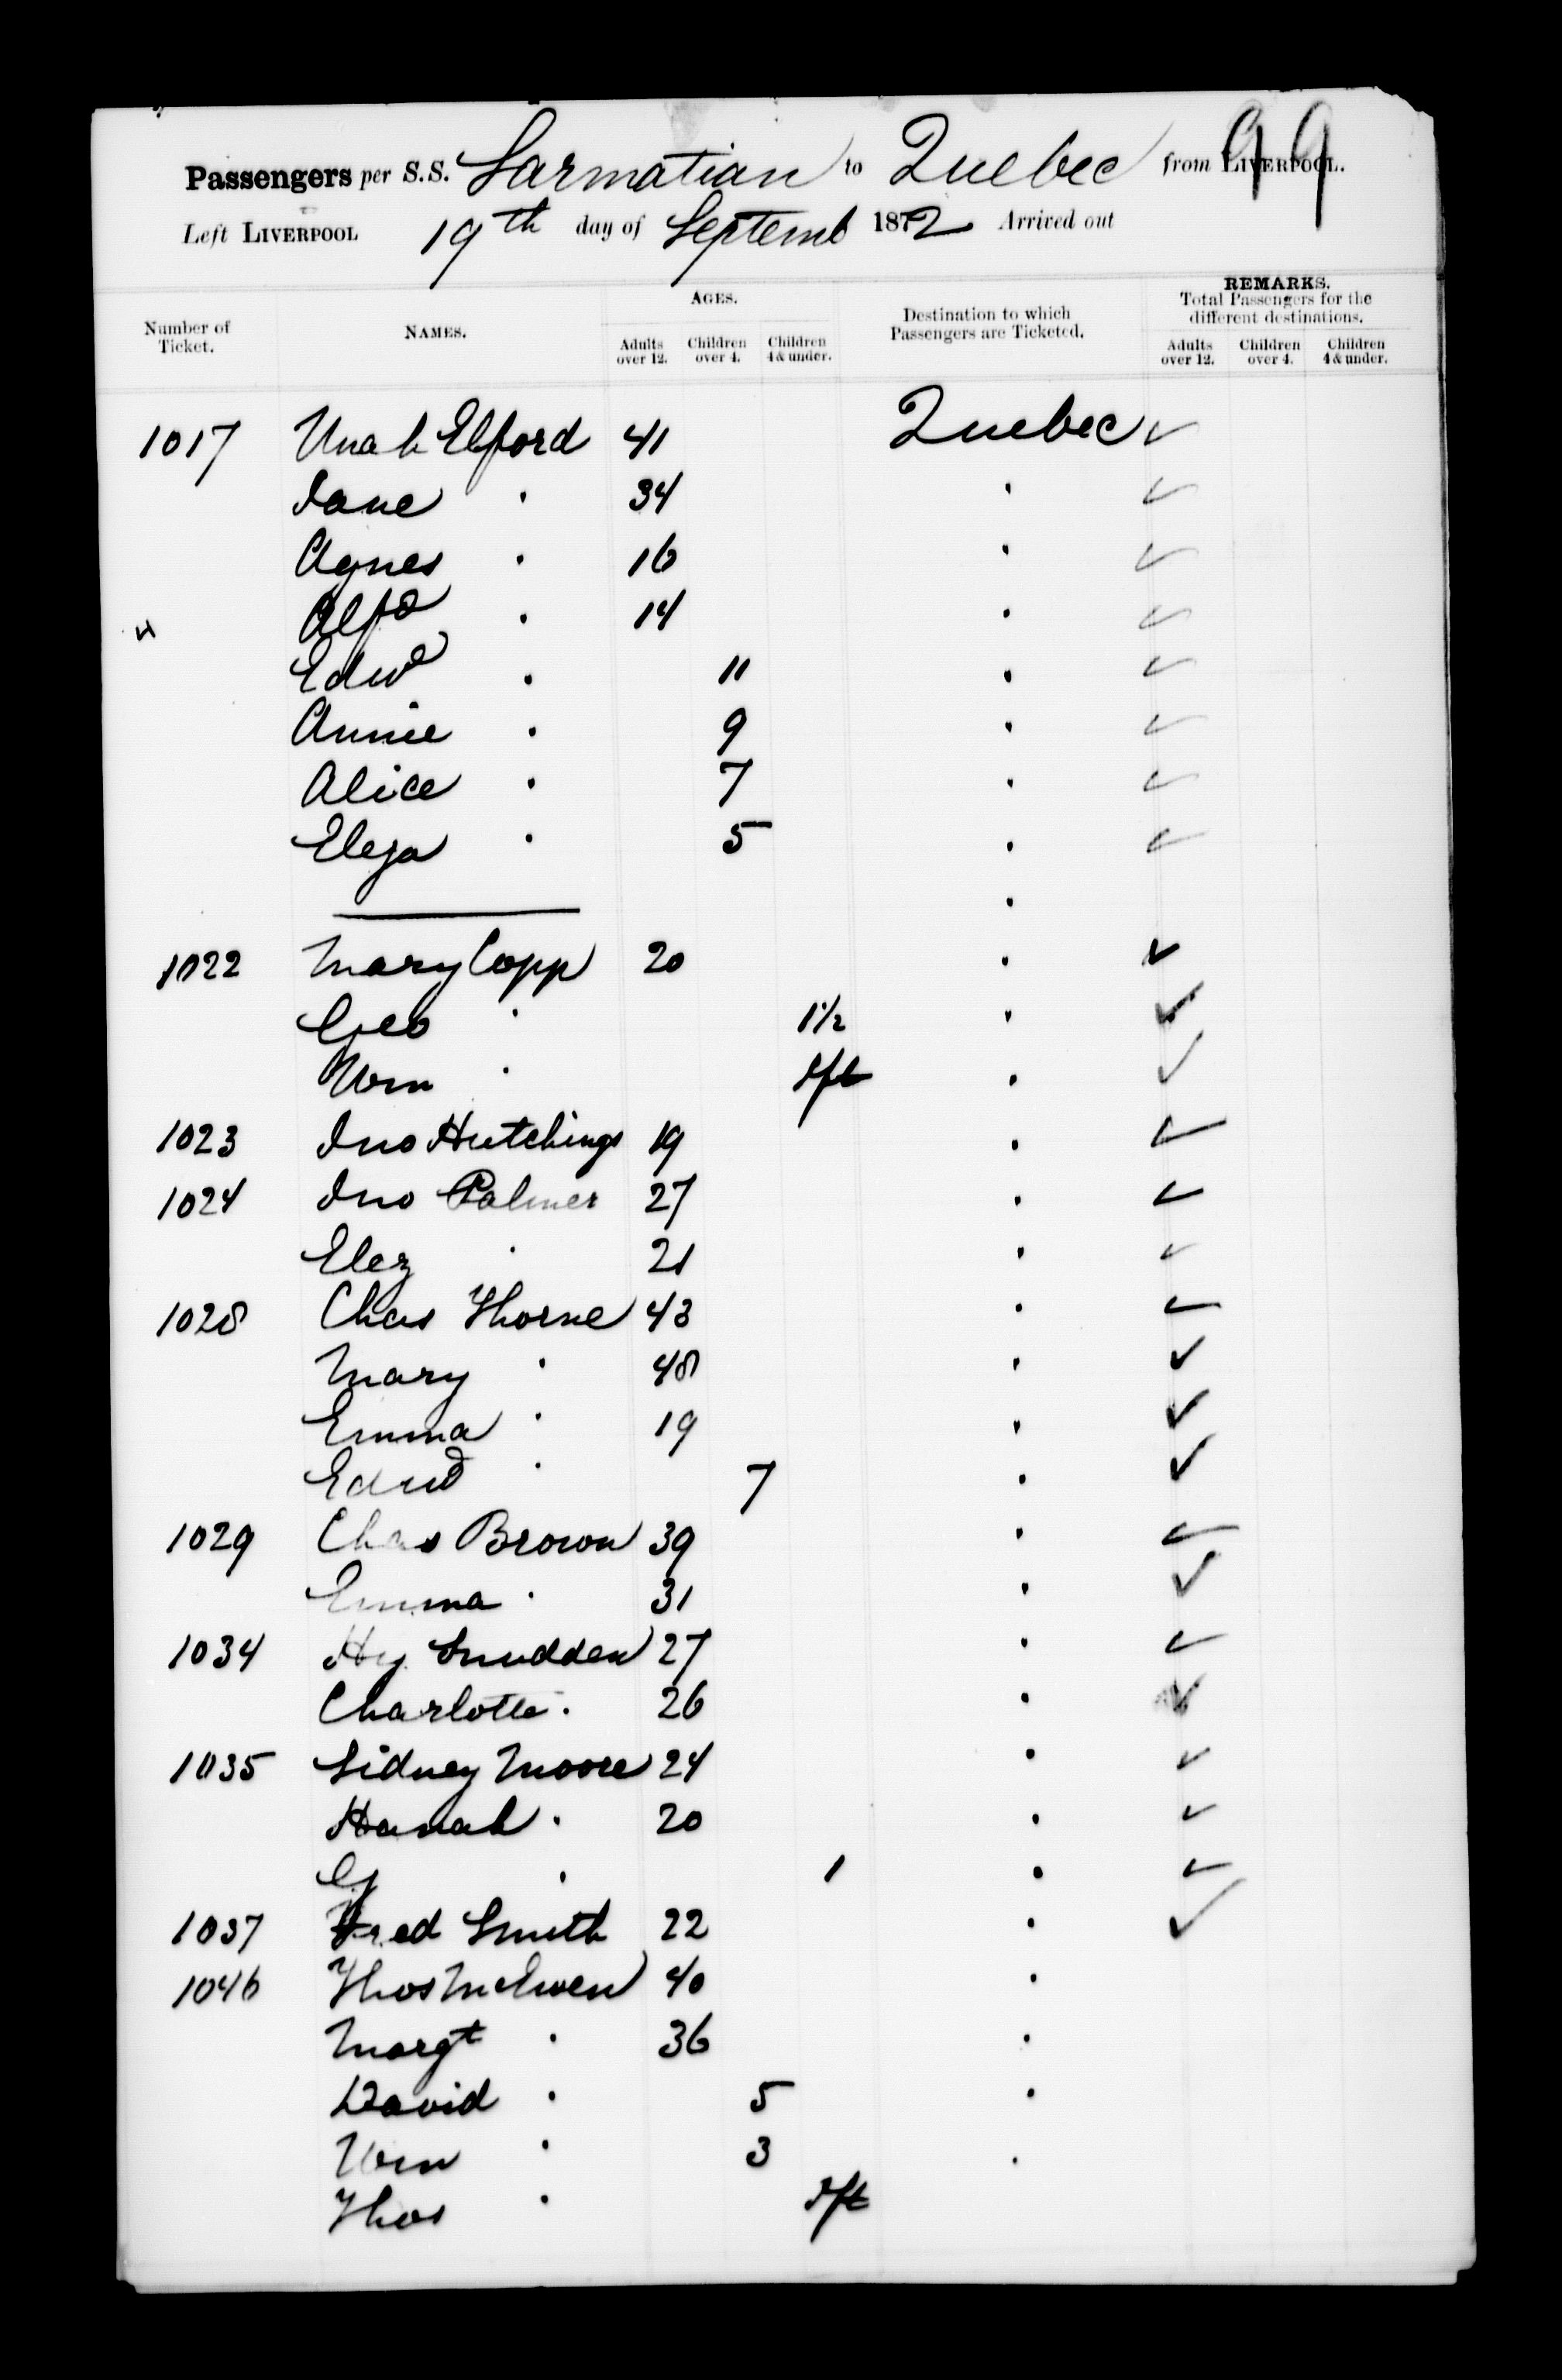 99
Passengers per S.S. Sarmatian to Quebec from LIVERPOOL.
Left LIVERPOOL 19th day of Septemb 1872 Arrived out
Number of Ticket. NAMES. AGES. Destination to which Passengers are Ticketed. REMARKS. Total Passengers for the different destinations.
Adults over 12. Children over 4. Children 4 & under. Adults over 12. Children over 4. Children 4 & under.
1017 Elford 41 Quebec ✓
Jane " 34 " ✓
Agnes " 16 " ✓
Alfd " 14 " ✓
Edwd " 11 " ✓
Annie " 9 " ✓
Alice " 7 " ✓
Eliza " 5 " ✓
"
1022 Mary Copp 20 " ✓
Geo " 1½ " ✓
Wm " Ift " ✓
1023 Jno Hutchings 19 " ✓
1024 Jno Palmer 27 " ✓
Eliz " 21 " ✓
1028 Chas Thorne 43 " ✓
Mary " 48 " ✓
Emma " 19 " ✓
Edwd " 7 " ✓
1029 Chas Brown 39 " ✓
Emma " 31 " ✓
1034 Hy Snudden 27 " ✓
Charlotte " 26 " ✓
1035 Sidney Moore 24 " ✓
Hanah " 20 " ✓
G " 1 " ✓
1037 Fred Smith 22 " ✓
1046 Thos McEwen 40 "
Margt " 36 "
David " 5 "
Wm " 3 "
Thos " Ift